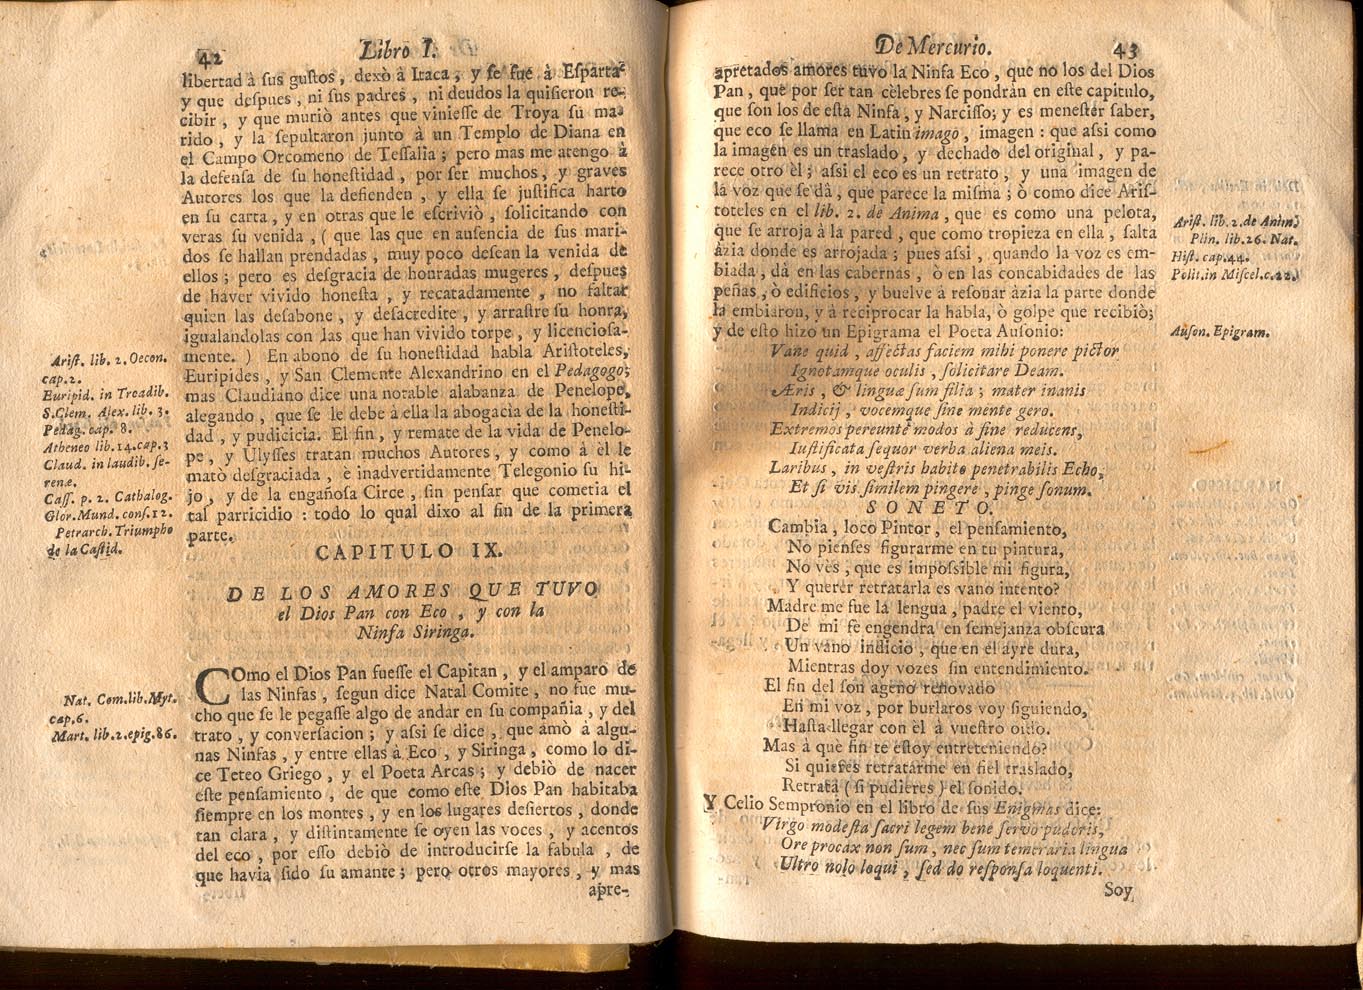 42 Libro I.
libertad à ſus guſtos, dexò à Itaca, y ſe fue à Eſparta
y que deſpues, ni ſus padres, ni deudos la quiſieron re-
cibir, y que muriò antes que vinieſſe de Troya ſu ma-
rido, y la ſepultaron junto à un Templo de Diana en
el Campo Orcomeno de Teſſalia; pero mas me atengo à
la defenſa de ſu honeſtidad, por ſer muchos, y graves
Autores los que la defienden, y ella ſe juſtifica harto
en ſu carta, y en otras que le eſcriviò, ſolicitando con
veras ſu venida, (que las que en auſencia de ſus mari-
dos ſe hallan prendadas, muy poco deſean la venida de
ellos; pero es deſgracia de honradas mugeres, deſpues
de haver vivido honeſta, y recatadamente, no faltar
quien las deſabone, y deſacredite, y arraſtre ſu honra,
igualandolas con las que han vivido torpe, y licencioſa-
mente.) En abono de ſu honeſtidad habla Ariſtoteles,
Euripides, y San Clemente Alexandrino en el Pedagogo;
mas Claudiano dice una notable alabanza de Penelope,
alegando, que ſe le debe à ella la abogacia de la honeſti-
dad, y pudicicia. El fin, y remate de la vida de Penelo-
pe, y Ulyſſes tratan muchos Autores, y como à èl le
matò deſgraciada, è inadvertidamente Telegonio ſu hi-
jo, y de la engañoſa Circe, ſin penſar que cometia el
tal parricidio: todo lo qual dixo al fin de la primera
parte.
Ariſt. lib. 2. Oecon.
cap.2.
Euripid. in Troadib.
S.Clem. Alex. lib. 3.
Pedag. cap. 8.
Atheneo lib.14.cap.3
Claud. in laudib. ſe-
renæ.
Caſſ. p. 2. Cathalog.
Glor.Mund. conſ.12.
Petrarch. Triumpho
de la Caſtid.
CAPITULO IX.
DE LOS AMORES QUE TUVO
el Dios Pan con Eco, y con la
Ninfa Siringa.
COmo el Dios Pan fueſſe el Capitan, y el amparo de
las Ninfas, ſegun dice Natal Comite, no fue mu-
cho que ſe le pegaſſe algo de andar en ſu compañia, y del
trato, y converſacion; y aſsi ſe dice, que amò à algu-
nas Ninfas, y entre ellas à Eco, y Siringa, como lo di-
ce Teteo Griego, y el Poeta Arcas; y debiò de nacer
eſte penſamiento, de que como eſte Dios Pan habitaba
ſiempre en los montes, y en los lugares deſiertos, donde
tan clara, y diſtintamente ſe oyen las voces, y acentos
del eco, por eſſo debiò de introducirſe la fabula, de
que havia ſido ſu amante; pero otros mayores, y mas
apre-
Nat. Com.lib.Myt.
cap.6.
Mart. lib.2.epig.86.
De Mercurio. 43
apretados amores tuvo la Ninfa Eco, que no los del Dios
Pan, que por ſer tan cèlebres ſe pondràn en eſte capitulo,
que ſon los de eſta Ninfa, y Narciſſo; y es meneſtèr ſaber,
que eco ſe llama en Latin imago, imagen: que aſsi como
la imagen es un traslado, y dechado del original, y pa-
rece otro èl; aſsi el eco es un retrato, y una imagen de
la voz que ſe dà, que parece la miſma; ò como dice Ariſ-
toteles en el lib. 2. de Anima, que es como una pelota,
que ſe arroja à la pared, que como tropieza en ella, ſalta
àzia donde es arrojada; pues aſsi, quando la voz es em-
biada, dà en las cabernas, ò en las concabidades de las
peñas, ò edificios, y buelve à reſonar àzia la parte donde
la embiaron, y à reciprocar la habla, ò golpe que recibiò;
y de eſto hizo un Epigrama el Poeta Auſonio:
Ariſt. lib.2.de Anim.
Plin. lib.26. Nat.
Hiſt. cap.44.
Polit.in Miſcel.c.22.
Auſon. Epigram.
Vane quid, affectas faciem mihi ponere pictor
Ignotamque oculis, ſolicitare Deam.
Æris, & linguæ ſum filia; mater inanis
Indicij, vocemque ſine mente gero.
Extremos pereunte modos à fine reducens,
Iuſtificata ſequor verba aliena meis.
Laribus, in veſtris habito penetrabilis Echo,
Et ſi vis ſimilem pingere, pinge ſonum.
SONETO.
Cambia, loco Pintor, el penſamiento,
No pienſes figurarme en tu pintura,
No vès, que es impoſsible mi figura,
Y querer retratarla es vano intento?
Madre me fue la lengua, padre el viento,
De mi ſe engendra en ſemejanza obſcura
Un vano indicio, que en el ayre dura,
Mientras doy vozes ſin entendimiento.
El fin del ſon ageno renovado
En mi voz, por burlaros voy ſiguiendo,
Haſta llegar con èl à vueſtro oìdo.
Mas à què fin te eſtoy entreteniendo?
Si quieres retratarme en fiel traslado,
Retrata (ſi pudieres) el ſonido.
Y Celio Sempronio en el libro de ſus Enigmas dice:
Virgo modeſta ſacri legem bene ſervo pudoris,
Ore procax non ſum, nec ſum temeraria lingua
Ultro nolo loqui, ſed do reſponſa loquenti.
Soy